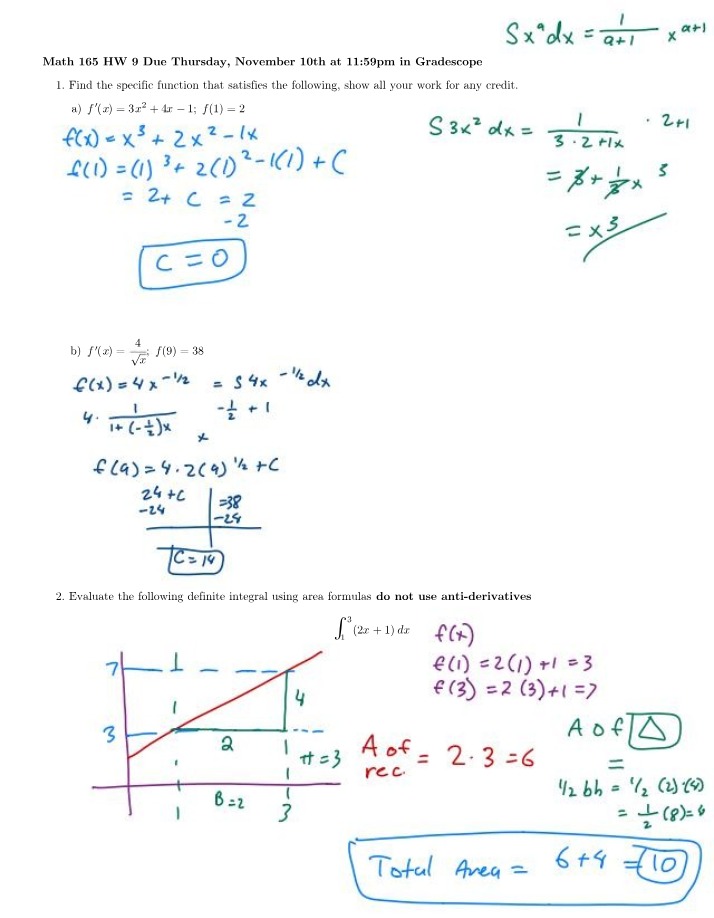 Sxᵃdx = 1/(a+1) x ᵃ⁺¹
Math 165 HW 9 Due Thursday, November 10th at 11:59pm in Gradescope
1. Find the specific function that satisfies the following, show all your work for any credit.
a) f′(x) = 3x² + 4x − 1; f(1) = 2
f(x) = x³ + 2x² − 1x
f(1) = (1)³ + 2(1)² − 1(1) + C
= 2 + C = 2
-2
C = 0
S 3x² dx = 1/(3·2+1x) · 2+1
= 3 + 1/3 x 3
= x³
b) f′(x) = 4/√x; f(9) = 38
f(x) = 4x^-1/2 = S 4x^-1/2 dx
4· 1/(1+(-1/2)x) x -1/2 + 1
f(9) = 4·2(9)^1/2 + C
24 + C = 38
-24 -24
C = 14
2. Evaluate the following definite integral using area formulas do not use anti-derivatives
∫₁³ (2x + 1) dx
f(x)
f(1) = 2(1) + 1 = 3
f(3) = 2(3) + 1 = 7
7
4
3
2
H = 3
B = 2
1
3
A of rec. = 2·3 = 6
A of △
=
1/2 bh = 1/2 (2)·(4)
= 1/2 (8) =
Total Area = 6 + 4 = 10